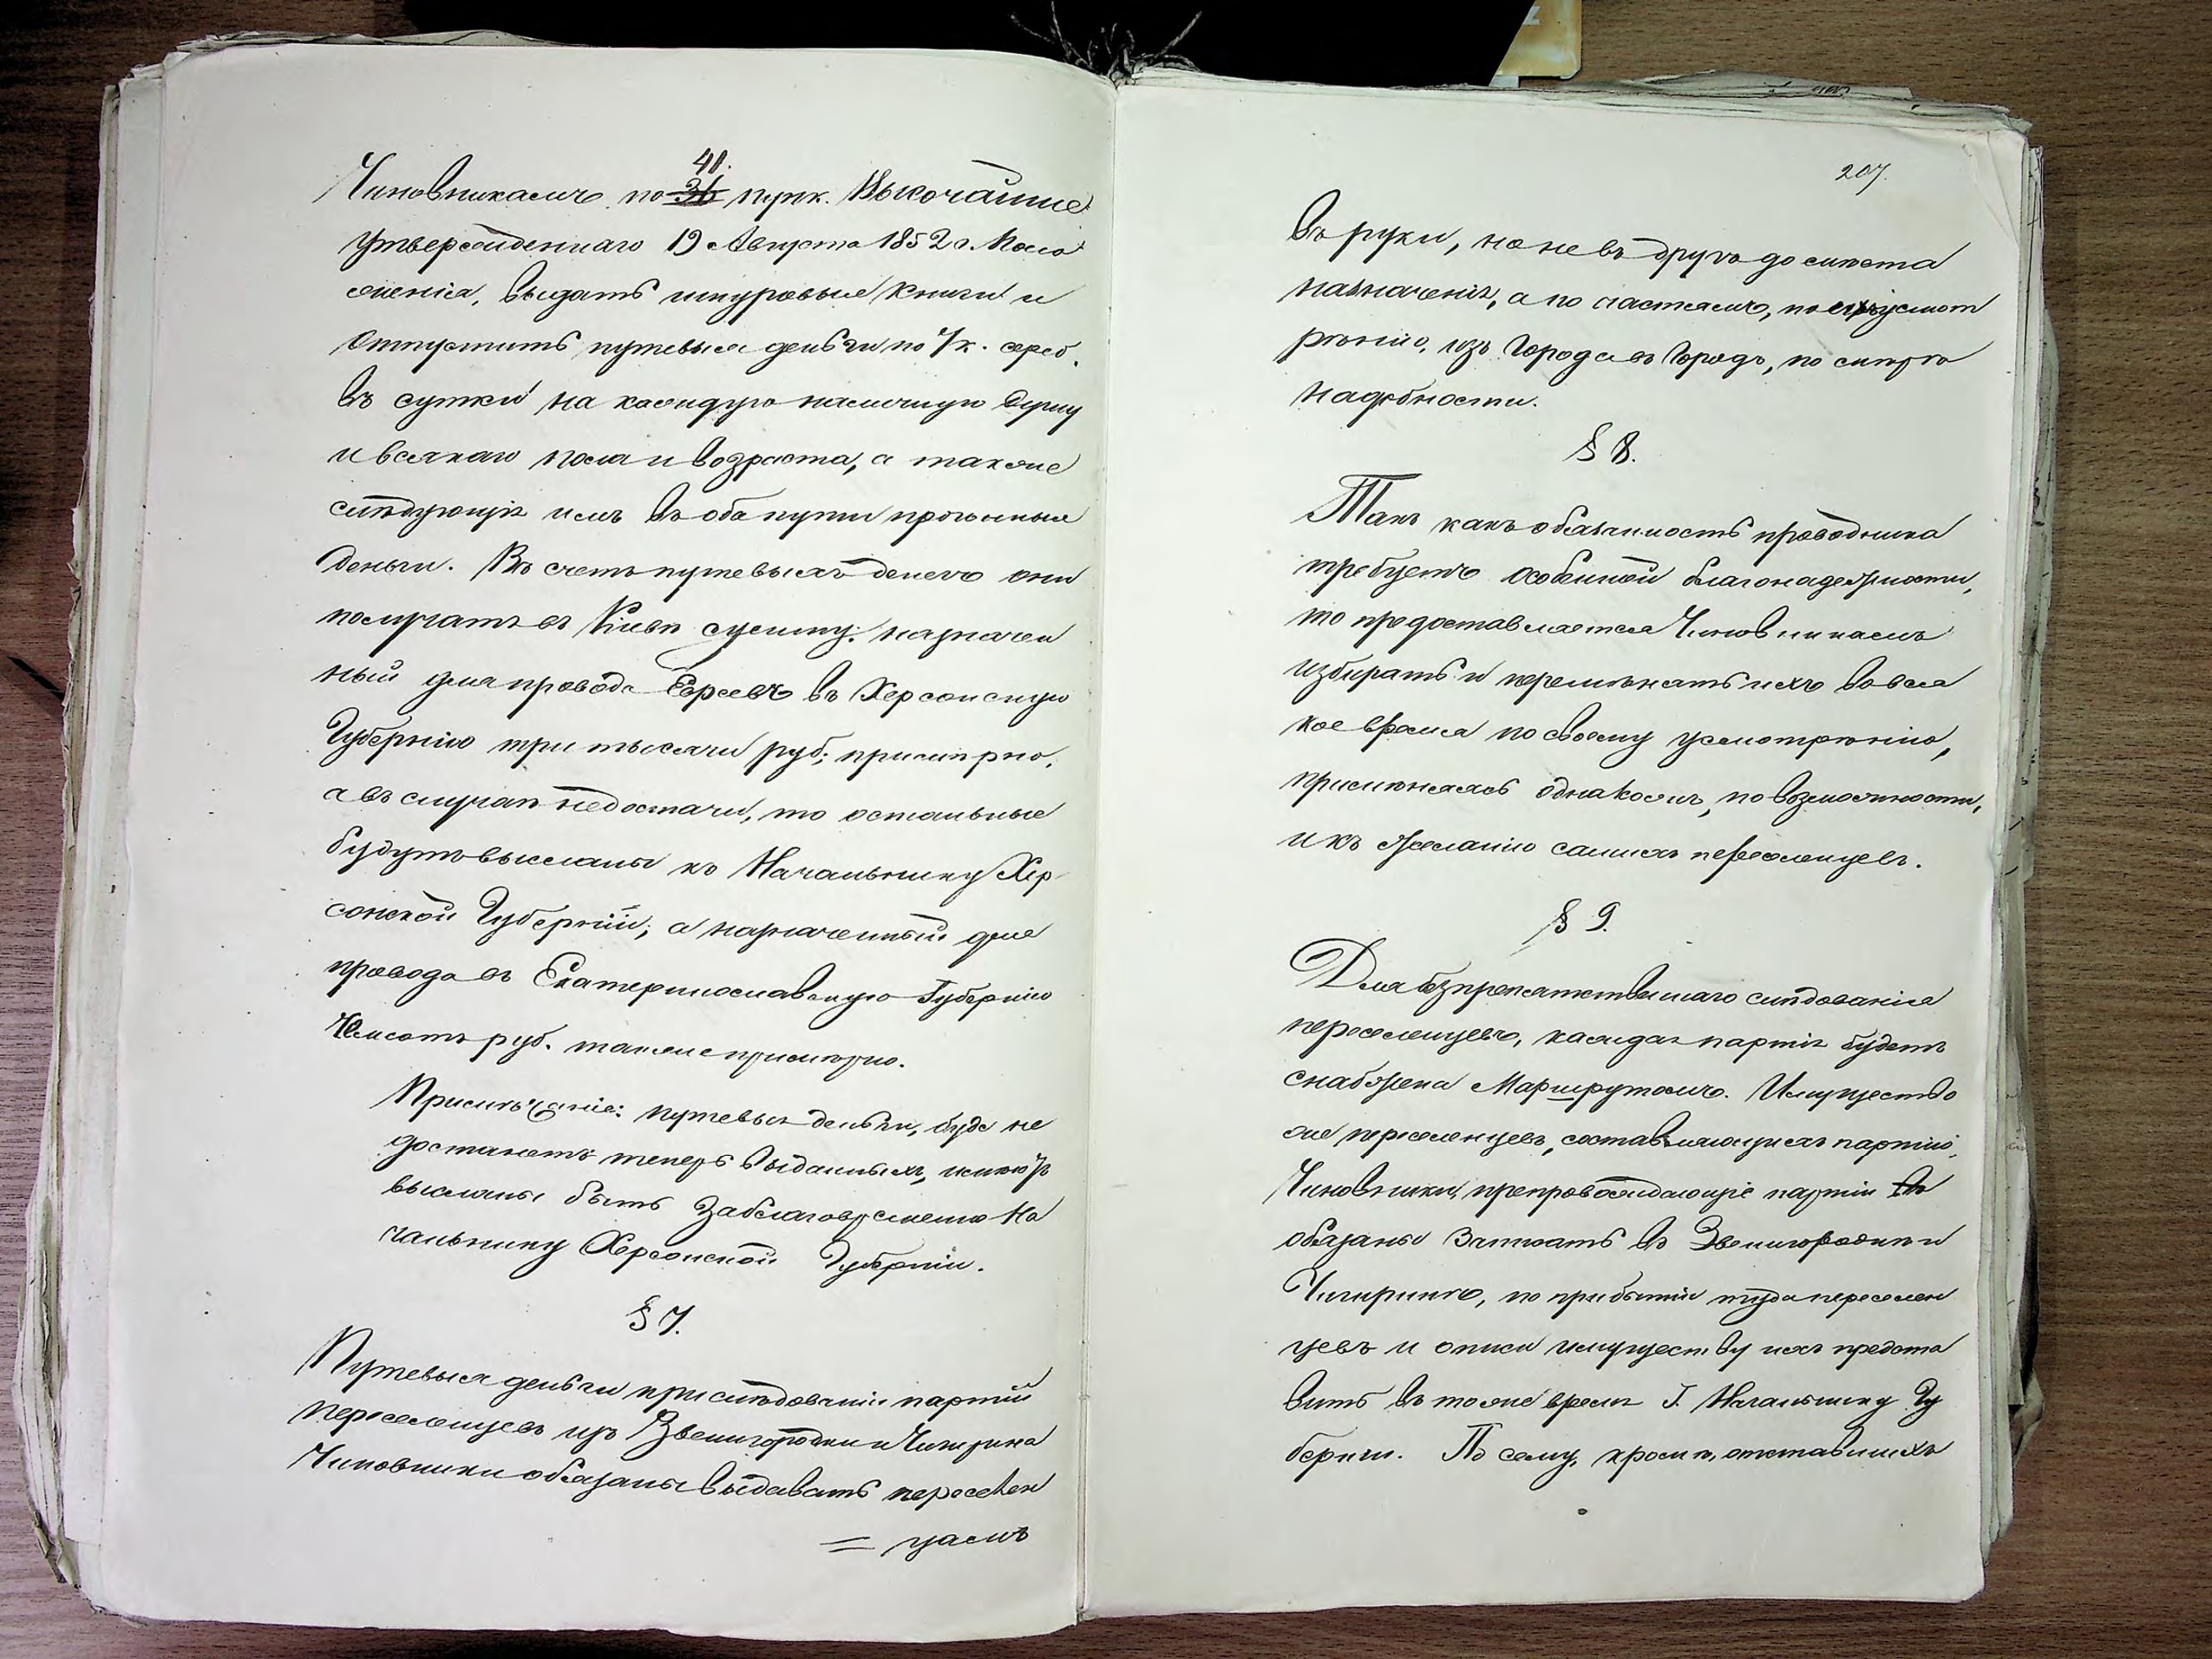 41.
Чиновникамъ по 36 пунк. Высочайше
утвержденнаго 19 Августа 1852 г. Поло
женія, выдать шнуровые книги и
отпустить путевыя деньги по 7 к. сереб.
въ сутки на каждую наличную душу
и всякаго пола и возраста, а также
слѣдующія имъ въ оба пути прогонныя
деньги. Въ счетъ путевыхъ денегъ они
получатъ въ Кіевѣ сумму: назначен
ный для провода Евреевъ въ Херсонскую
Губернію три тысячи руб; примѣрно,
а въ случаѣ недостачи, то остальные
будутъ высланы къ Начальнику Хер
сонской Губерніи; а назначенный для
провода въ Екатеринославскую Губернію
руб. также примѣрно.
Примѣчаніе: путевыя деньги, буде не
достанетъ теперь выданныхъ, имѣютъ
высланы быть заблаговременно На
чальнику Херсонской Губерніи.
§ 7.
Путевыя деньги при слѣдованіи партій
переселенцевъ изъ Звенигородки и Чигирина
Чиновники обязаны выдавать переселен
= цамъ
207.
въ руки, но не въ другъ до мѣста
назначенія, а по частямъ, по ихъ усмот
рѣнію, изъ Города въ Городъ, по мѣрѣ
надобности.
§ 8.
Такъ какъ обязанность проводника
требуетъ особенной благонадежности,
то предоставляется Чиновникамъ
избирать и перемѣнять ихъ во вся
кое время по своему усмотрѣнію,
примѣняясь однакожъ, по возможности,
и къ желанію самихъ переселенцевъ.
§ 9.
Для безпрепятственнаго слѣдованія
переселенцевъ, каждая партія будетъ
снабжена Маршрутомъ. Имущество
же переселенцевъ, составляющихъ партію,
Чиновники, препровождающіе партіи въ
обязаны въ Звенигородкѣ и
Чигиринѣ, по прибытіи туда переселен
цевъ и описи имуществу ихъ предста
вить въ тоже время Г. Начальнику Гу
берніи. По сему, кромѣ, отставшихъ